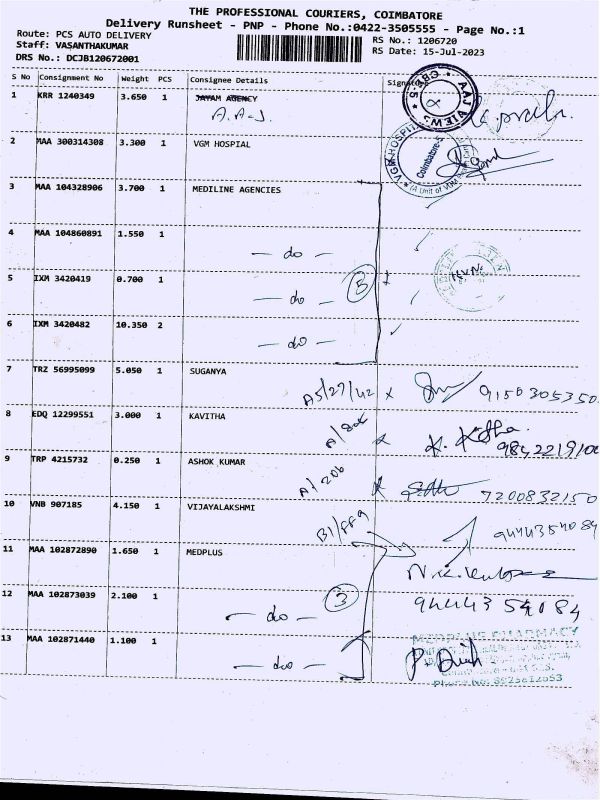 THE PROFESSIONAL COURIERS, COIMBATORE
Delivery Runsheet - PNP - Phone No.:0422-3505555 - Page No.:1
Route: PCS AUTO DELIVERY
RS No.: 1206720
Staff: VASANTHAKUMAR
RS Date: 15-Jul-2023
DRS No.: DCJB120672001
S No Consignment No Weight PCS Consignee Details Signature
1 KRR 1240349 3.650 1 JAYAM AGENCY
A.A-J.
2 MAA 300314308 3.300 1 VGM HOSPIAL
VGM HOSPITAL
Coimbatore-5
(A Unit of VGM
3 MAA 104328906 3.700 1 MEDILINE AGENCIES
4 MAA 104860891 1.550 1
— do —
5 IXM 3420419 0.700 1 — do — 5
6 IXM 3420482 10.350 2 — do —
7 TRZ 56995099 5.050 1 SUGANYA
A5/27/42 x 9150305350
8 EDQ 12299551 3.000 1 KAVITHA
K. 9842219100
9 TRP 4215732 0.250 1 ASHOK KUMAR
A/206 x 7200832150
10 VNB 907185 4.150 1 VIJAYALAKSHMI
B1/FF9 9444354084
11 MAA 102872890 1.650 1 MEDPLUS
12 MAA 102873039 2.100 1 — do — 3 9444354084
13 MAA 102871440 1.100 1 — do —
MEDPLUS PHARMACY